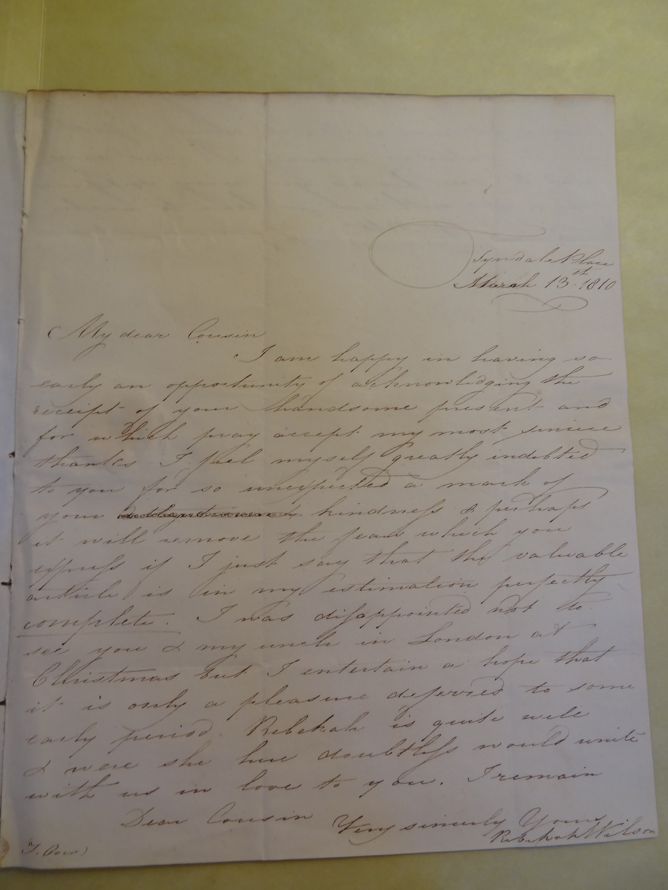 Tyndale Place
March 13th 1810
My dear Cousin
I am happy in having so
early an opportunity of acknowledging the
receipt of your handsome present and
for which pray accept my most sincere
thanks I feel myself greatly indebted
to you for so unexpected a mark of
your kindness & perhaps
it will remove the fears which you
express if I just say that the valuable
article is in my estimation perfectly
complete. I was disappointed not to
see you & my uncle in London at
Christmas but I entertain a hope that
it is only a pleasure deferred to some
early period. Rebekah is quite well
& were she here doubtless would unite
with us in love to you. I remain
Dear Cousin
Very sincerely Yours
Rebekah Wilson